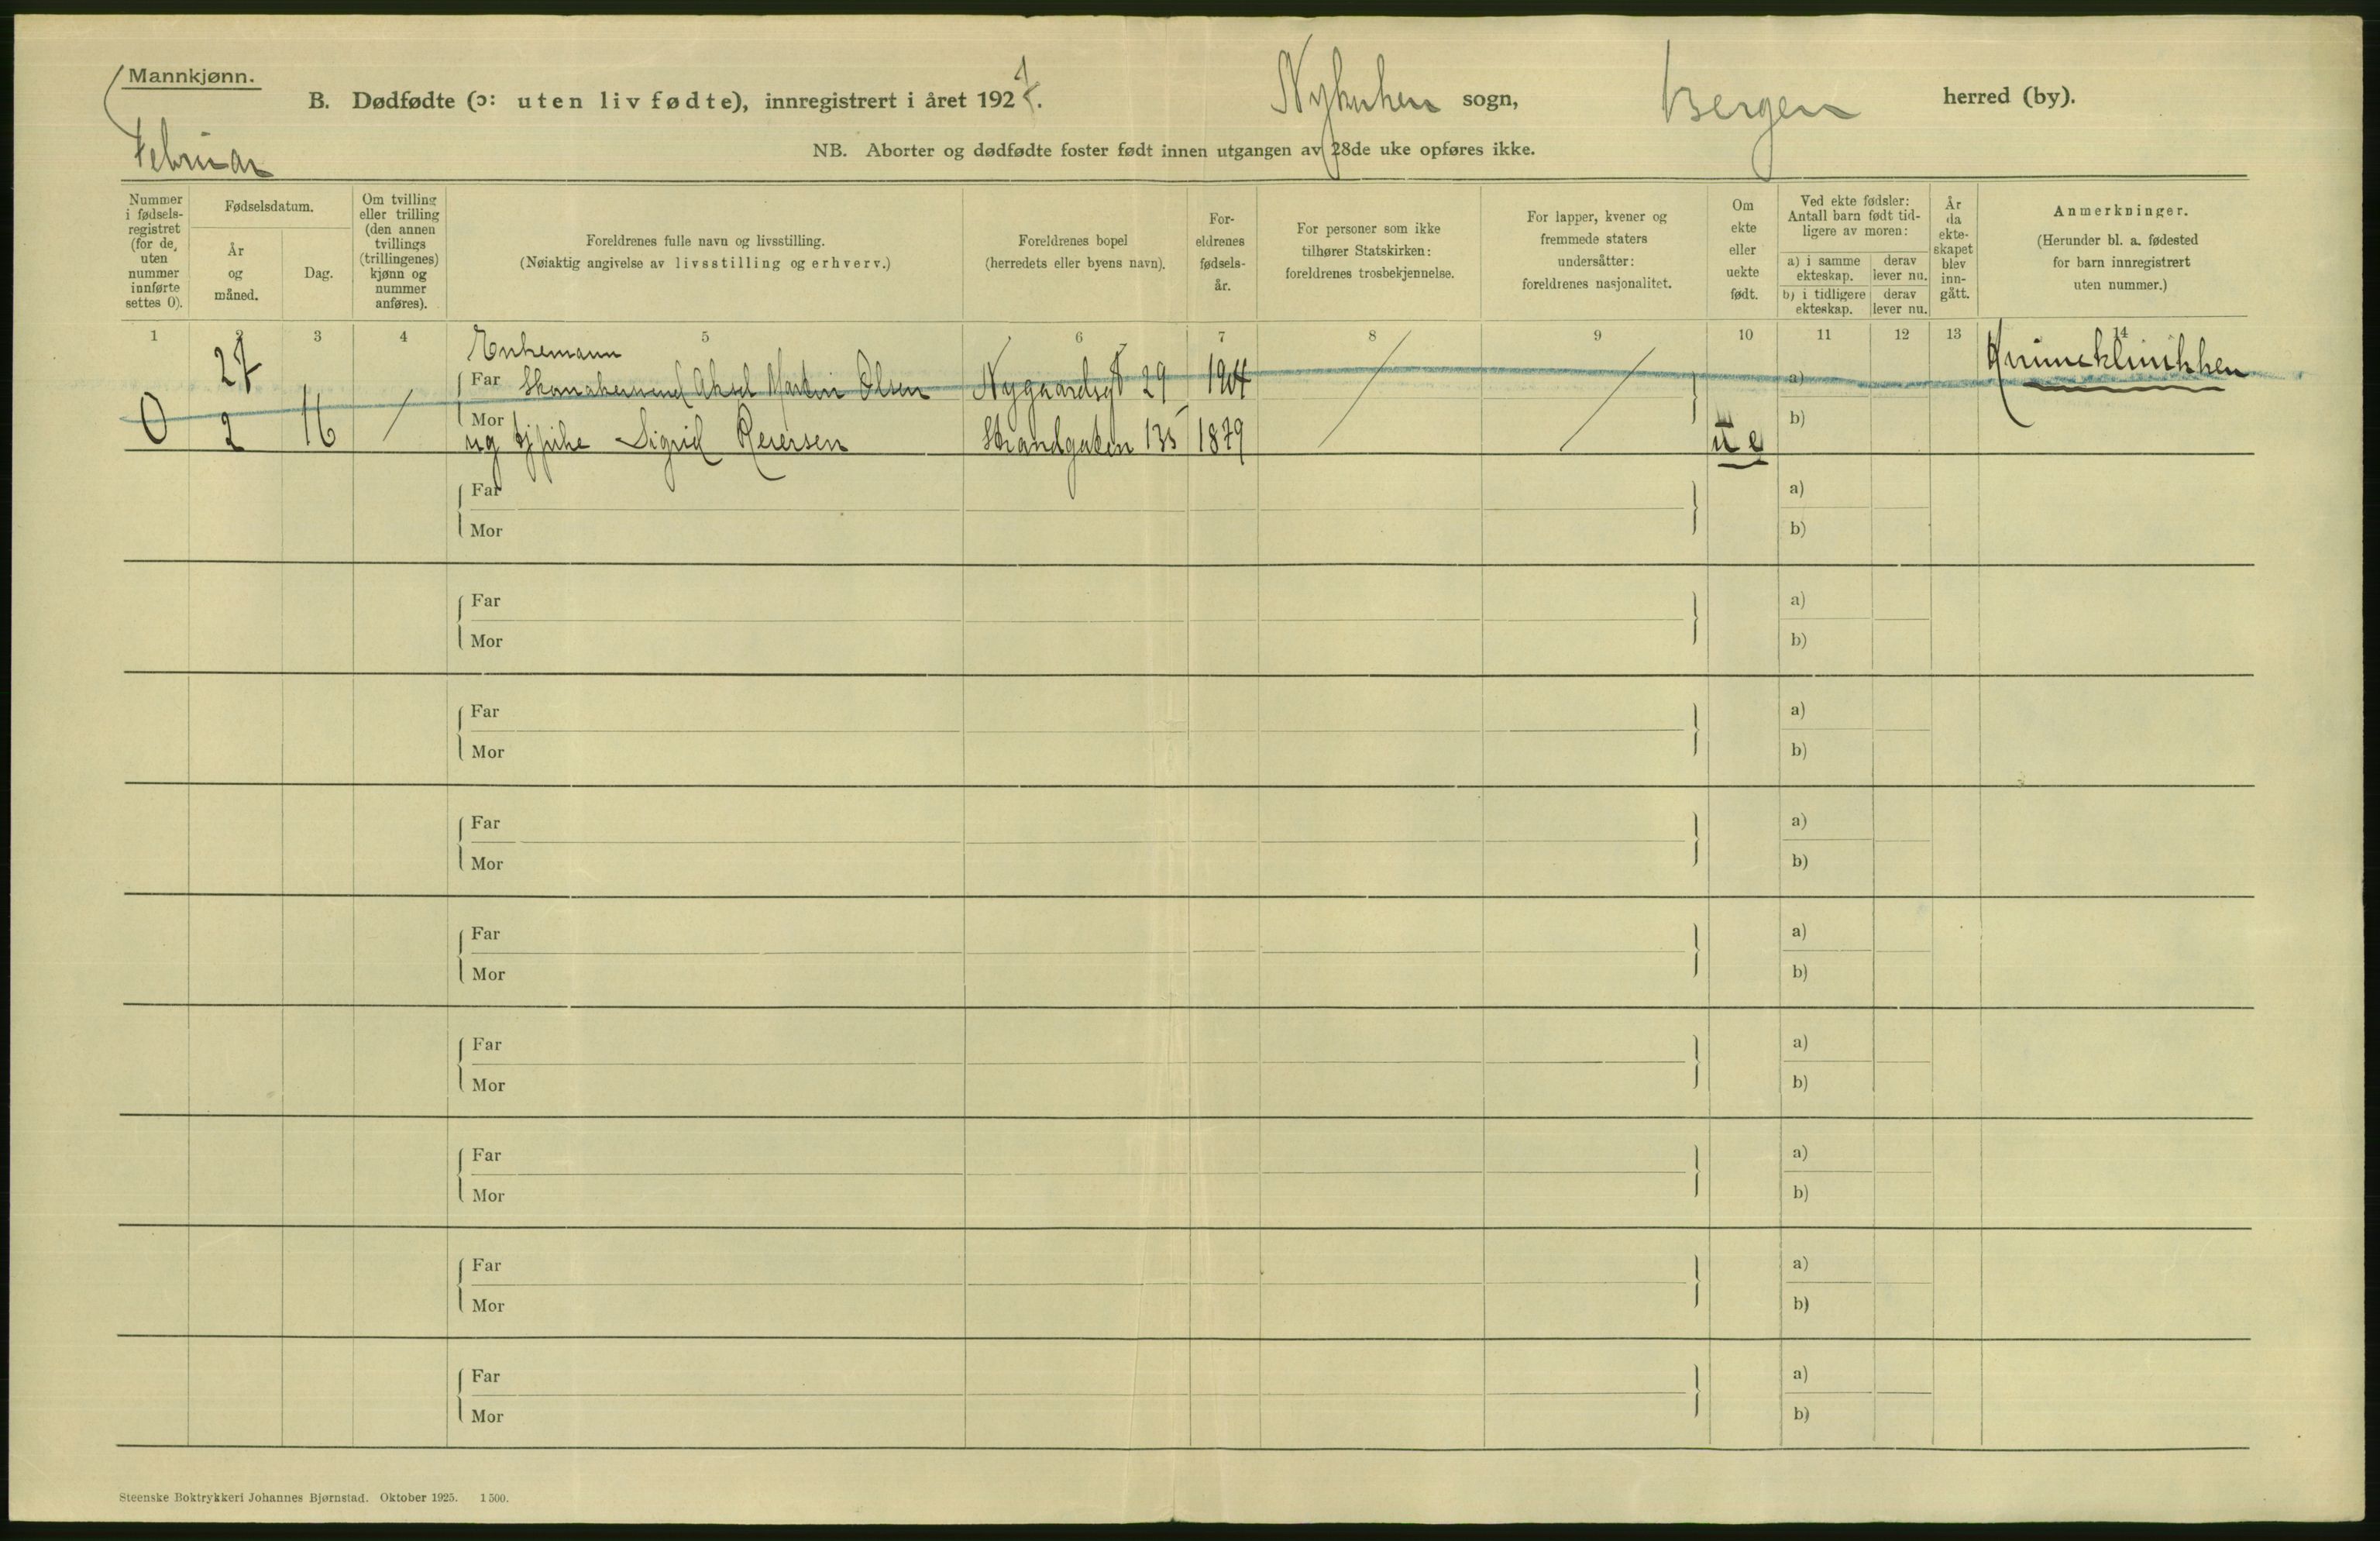 Mannkjønn.
B. Dødfødte (ɔ: uten liv fødte), innregistrert i året 1927.
Nykirken sogn,
Bergen herred (by).
Februar
NB. Aborter og dødfødte foster født innen utgangen av 28de uke opføres ikke.
Nummer
i fødsels-
registret
(for de
uten
nummer
innførte
settes 0).
Fødselsdatum.
År
og
måned.
Dag.
Om tvilling
eller trilling
(den annen
tvillings
(trillingenes)
kjønn og
nummer
anføres).
Foreldrenes fulle navn og livsstilling.
(Nøiaktig angivelse av livsstilling og erhverv.)
Foreldrenes bopel
(herredets eller byens navn).
For-
eldrenes
fødsels-
år.
For personer som ikke
tilhører Statskirken:
foreldrenes trosbekjennelse.
For lapper, kvener og
fremmede staters
undersåtter:
foreldrenes nasjonalitet.
Om
ekte
eller
uekte
født.
Ved ekte fødsler:
Antall barn født tid-
ligere av moren:
a) i samme
ekteskap.
derav
lever nu.
b) i tidligere
ekteskap.
derav
lever nu.
År
da
ekte-
skapet
blev
inn-
gått.
Anmerkninger.
(Herunder bl. a. fødested
for barn innregistrert
uten nummer.)
1 2 3 4 5 6 7 8 9 10 11 12 13 14
Enkemann
27 Far Aksel Martin Olsen Nygaardsgt 29 1904 / / a) Kvineklinikken
0 2 16 / Mor b)
ug Sigrid Reiersen Strandgaten 135 1879 u e
Far a)
Mor b)
Far a)
Mor b)
Far a)
Mor b)
Far a)
Mor b)
Far a)
Mor b)
Far a)
Mor b)
Far a)
Mor b)
Far a)
Mor b)
Far a)
Mor b)
Steenske Boktrykkeri Johannes Bjørnstad. Oktober 1925. 1500.